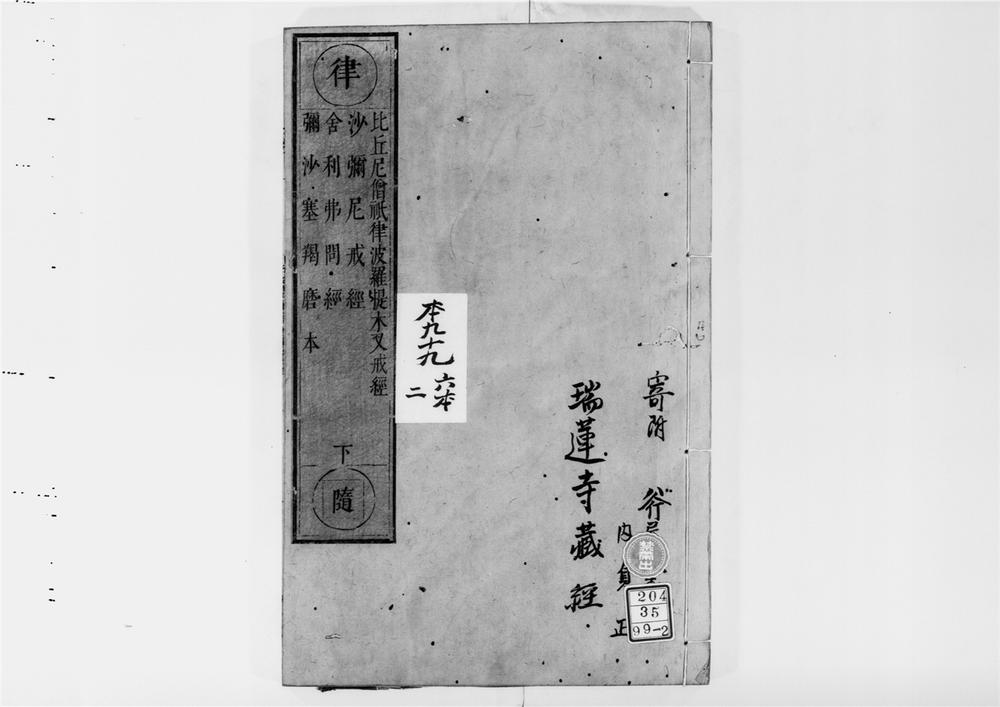 律
比丘尼僧祇律波羅提木叉戒經
沙彌尼戒經
舍利弗問經
彌沙塞羯磨本
下
隨
本九十九
六本
二
寄附
瑞蓮寺藏經
内
正
禁帯出
204
35
99-2